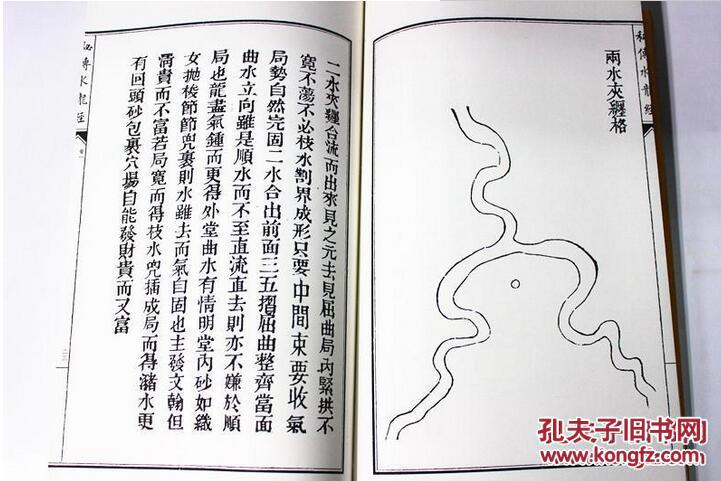 秘傳水龍經
兩水夾纏格
二水夾纏合流而出來見之元去見屈曲局內緊拱不
寬不蕩不必枝水割界成形只要中間束要收氣
局勢自然完固二水合出前面三五摺屈曲整齊當面
曲水立向雖是順水而不至直流直去則亦不嫌於順
局也龍盡氣鍾而更得外堂曲水有情明堂內砂如織
女拋梭節節兜裹則水雖去而氣自固也主發文翰但
清貴而不富若局寬而得枝水兜插成局而得瀦水更
有回頭砂包裹穴場自能發財貴而又富
秘傳水龍經
孔夫子旧书网
www.kongfz.com